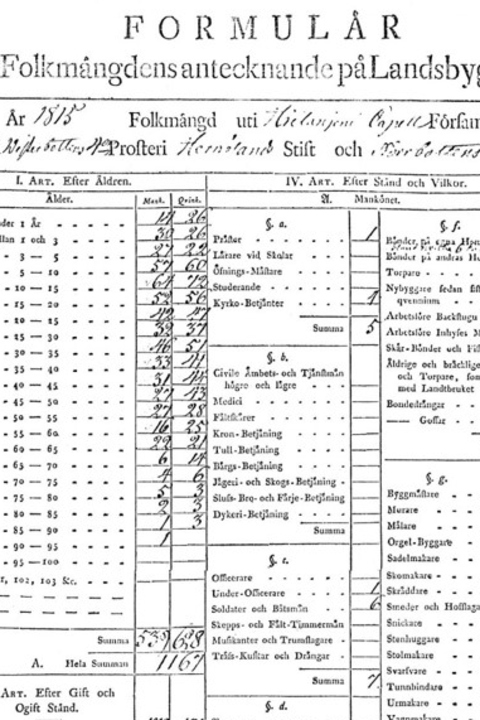 FORMULÅR
Folkmångdens antecknande på Landsbyg
År 1815 Folkmångd uti Hietaniemi Capell Försam
Westerbottens 4de Prosteri Hernösands Stift och Norrbottens
I. Art. Efter Åldren.
Ålder. Mank. Qvink.
der 1 År 14 26
llan 1 och 3 30 26
- 3 — 5 27 22
- 5 — 10 57 60
- 10 — 15 64
- 15 — 20 53 56
- 20 — 25 42 47
- 25 — 30 39 37
- 30 — 35 46 51
- 35 — 40 33 44
- 40 — 45 31 44
- 45 — 50 27 43
- 50 — 55 27 28
- 55 — 60 16 25
- 60 — 65 22 21
- 65 — 70 6 14
- 70 — 75 4 6
- 75 — 80 5 3
- 80 — 85 2 3
- 85 — 90 1 3
- 90 — 95 1
- 95 — 100
r, 102, 103 &c.
Summa 539 628
A. Hela Summan 1167
Art. Efter Gift och
Ogift Stånd.
IV. Art. Efter Stånd och Vilkor.
A. Mankönet.
§. a.
Präster 1
Lårare vid Skolar
Öfnings-Måstare
Studerande
Kyrko-Betjänter 4
Summa 5
§. b.
Civile Åmbets- och Tjänstmän
högre och lägre
Medici
Fältskärer
Kron-Betjäning
Tull-Betjäning
Bårgs-Betjäning
Jågeri- och Skogs-Betjäning
Slufs- Bro- och Färje-Betjäning
Dykeri-Betjäning
Summa
§. c.
Officerare
Under-Officerare 1
Soldater och Båtsmän 6
Skepps- och Fält-Timmermän
Musikanter och Trumslagare
Träss-Kuskar och Drångar
Summa 7
§. d.
§. f.
Bönder på egna Hem
Bönder på andras He
Torpare
Nybyggare sedan sist
qvennium
Arbetslöre Backstugu
Arbetslöre Inhyses M
Skår-Bönder och Fis
Åldrige och bräcklige
och Torpare, som
med Landtbruket
Bondedrängar
—— Gossar
§. g.
Byggmästare
Murare
Målare
Orgel-Byggare
Sadelmakare
Skomakare
Skräddare
Smeder och Hofslaga
Snickare
Stenhuggare
Stolmakare
Svarfvare
Tunnbindare
Urmakare
Vagnmakare